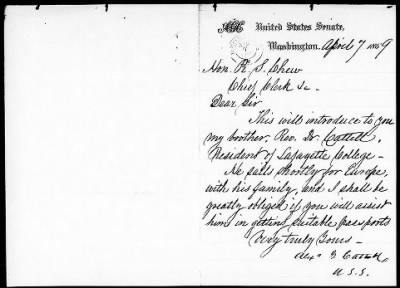 United States Senate,
Washington. April 7 1869
Hon. R. S. Chew
Chief Clerk &c.
Dear Sir
This will introduce to you
my brother, Rev. Dr. Cattell,
President of Lafayette College -
He sails shortly for Europe
with his family, and I shall be
greatly obliged if you will assist
him in getting suitable passports
Very truly Yours -
Alex G Cattell
U.S.S.